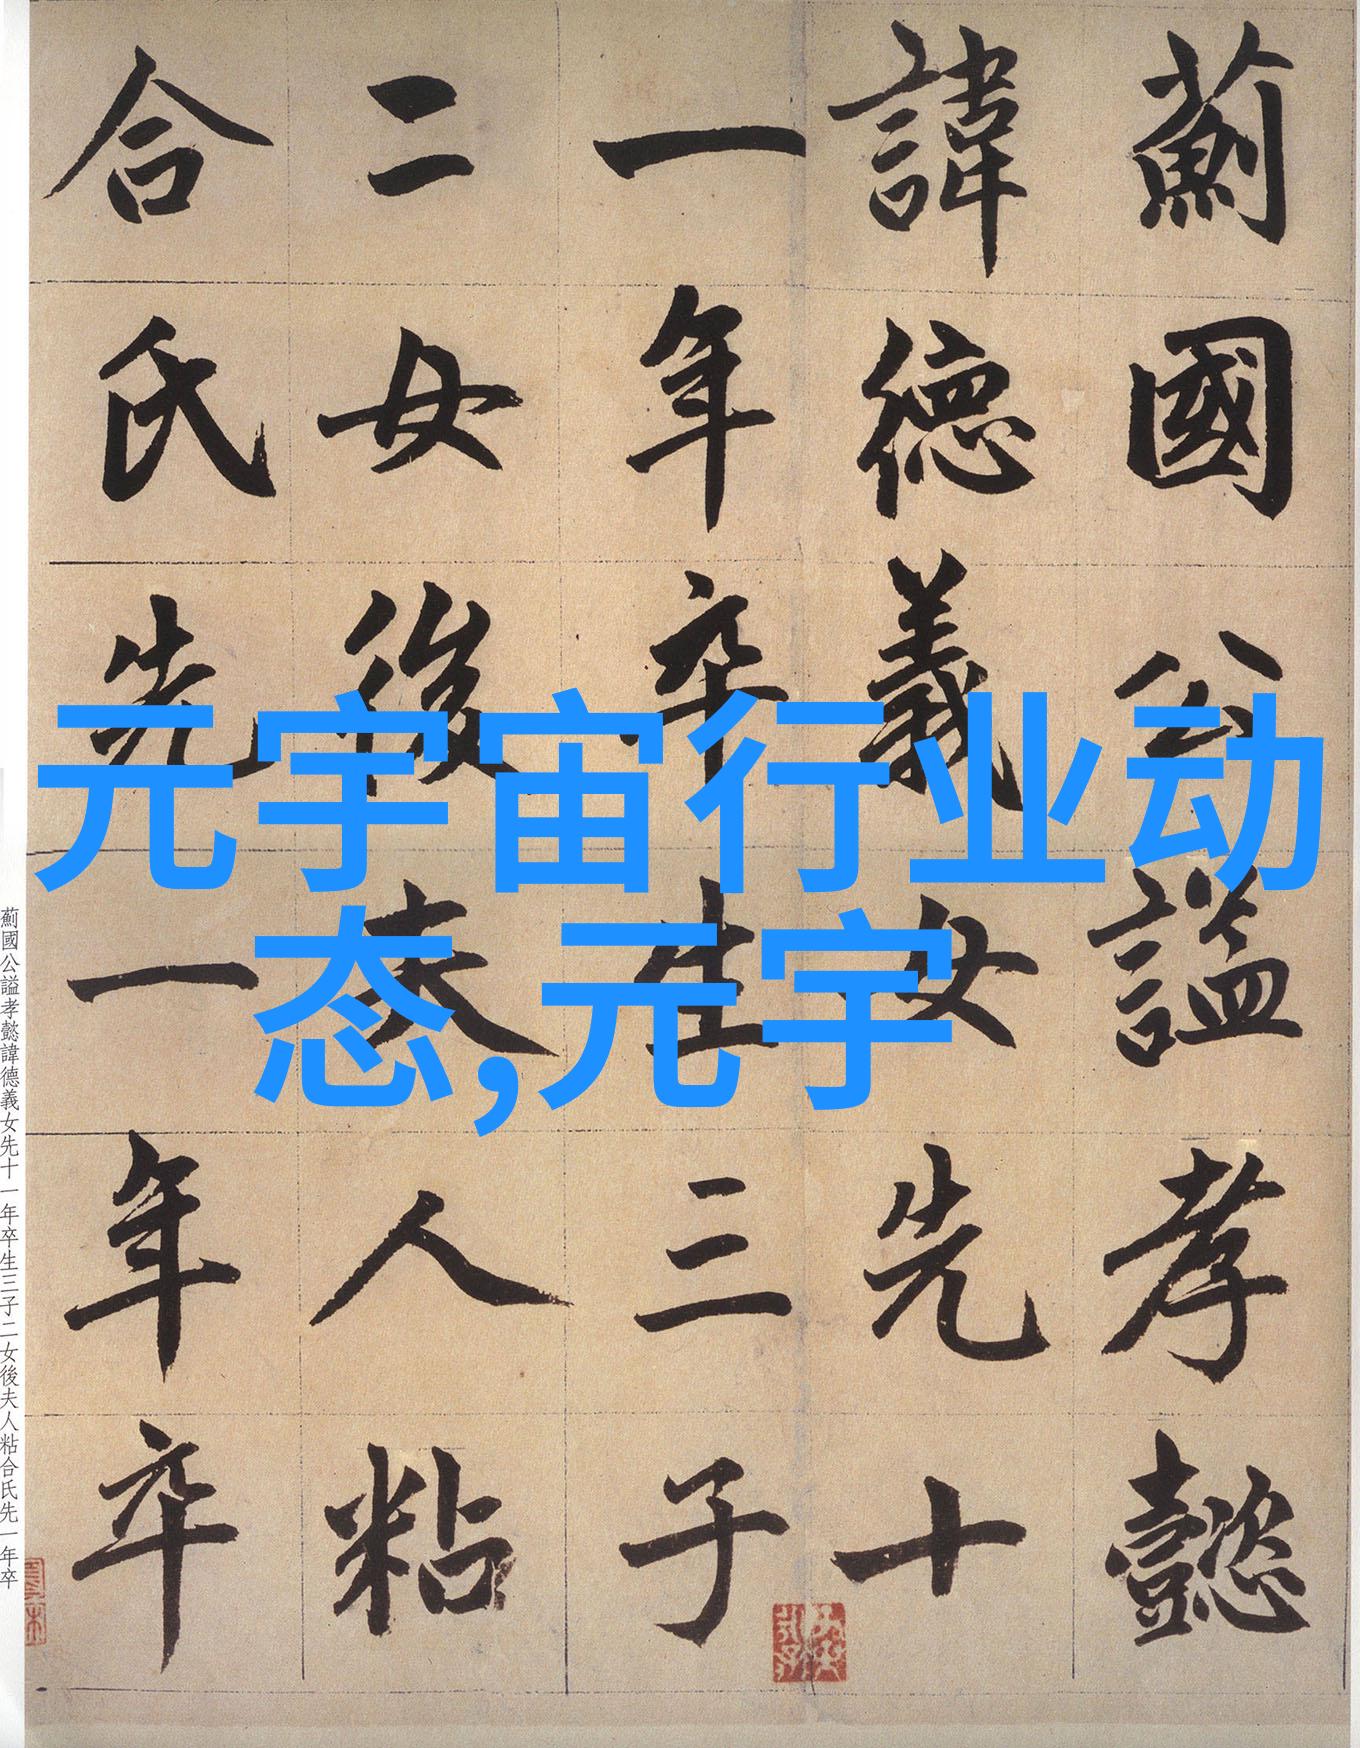 薊國公謚孝懿
諱德義女先十
一年卒生三子
二女後夫人粘
合氏先一年卒
元宇宙行业动
态,元宇
薊國公謚孝懿諱德義女先十一年卒生三子二女後夫人粘合氏先一年卒